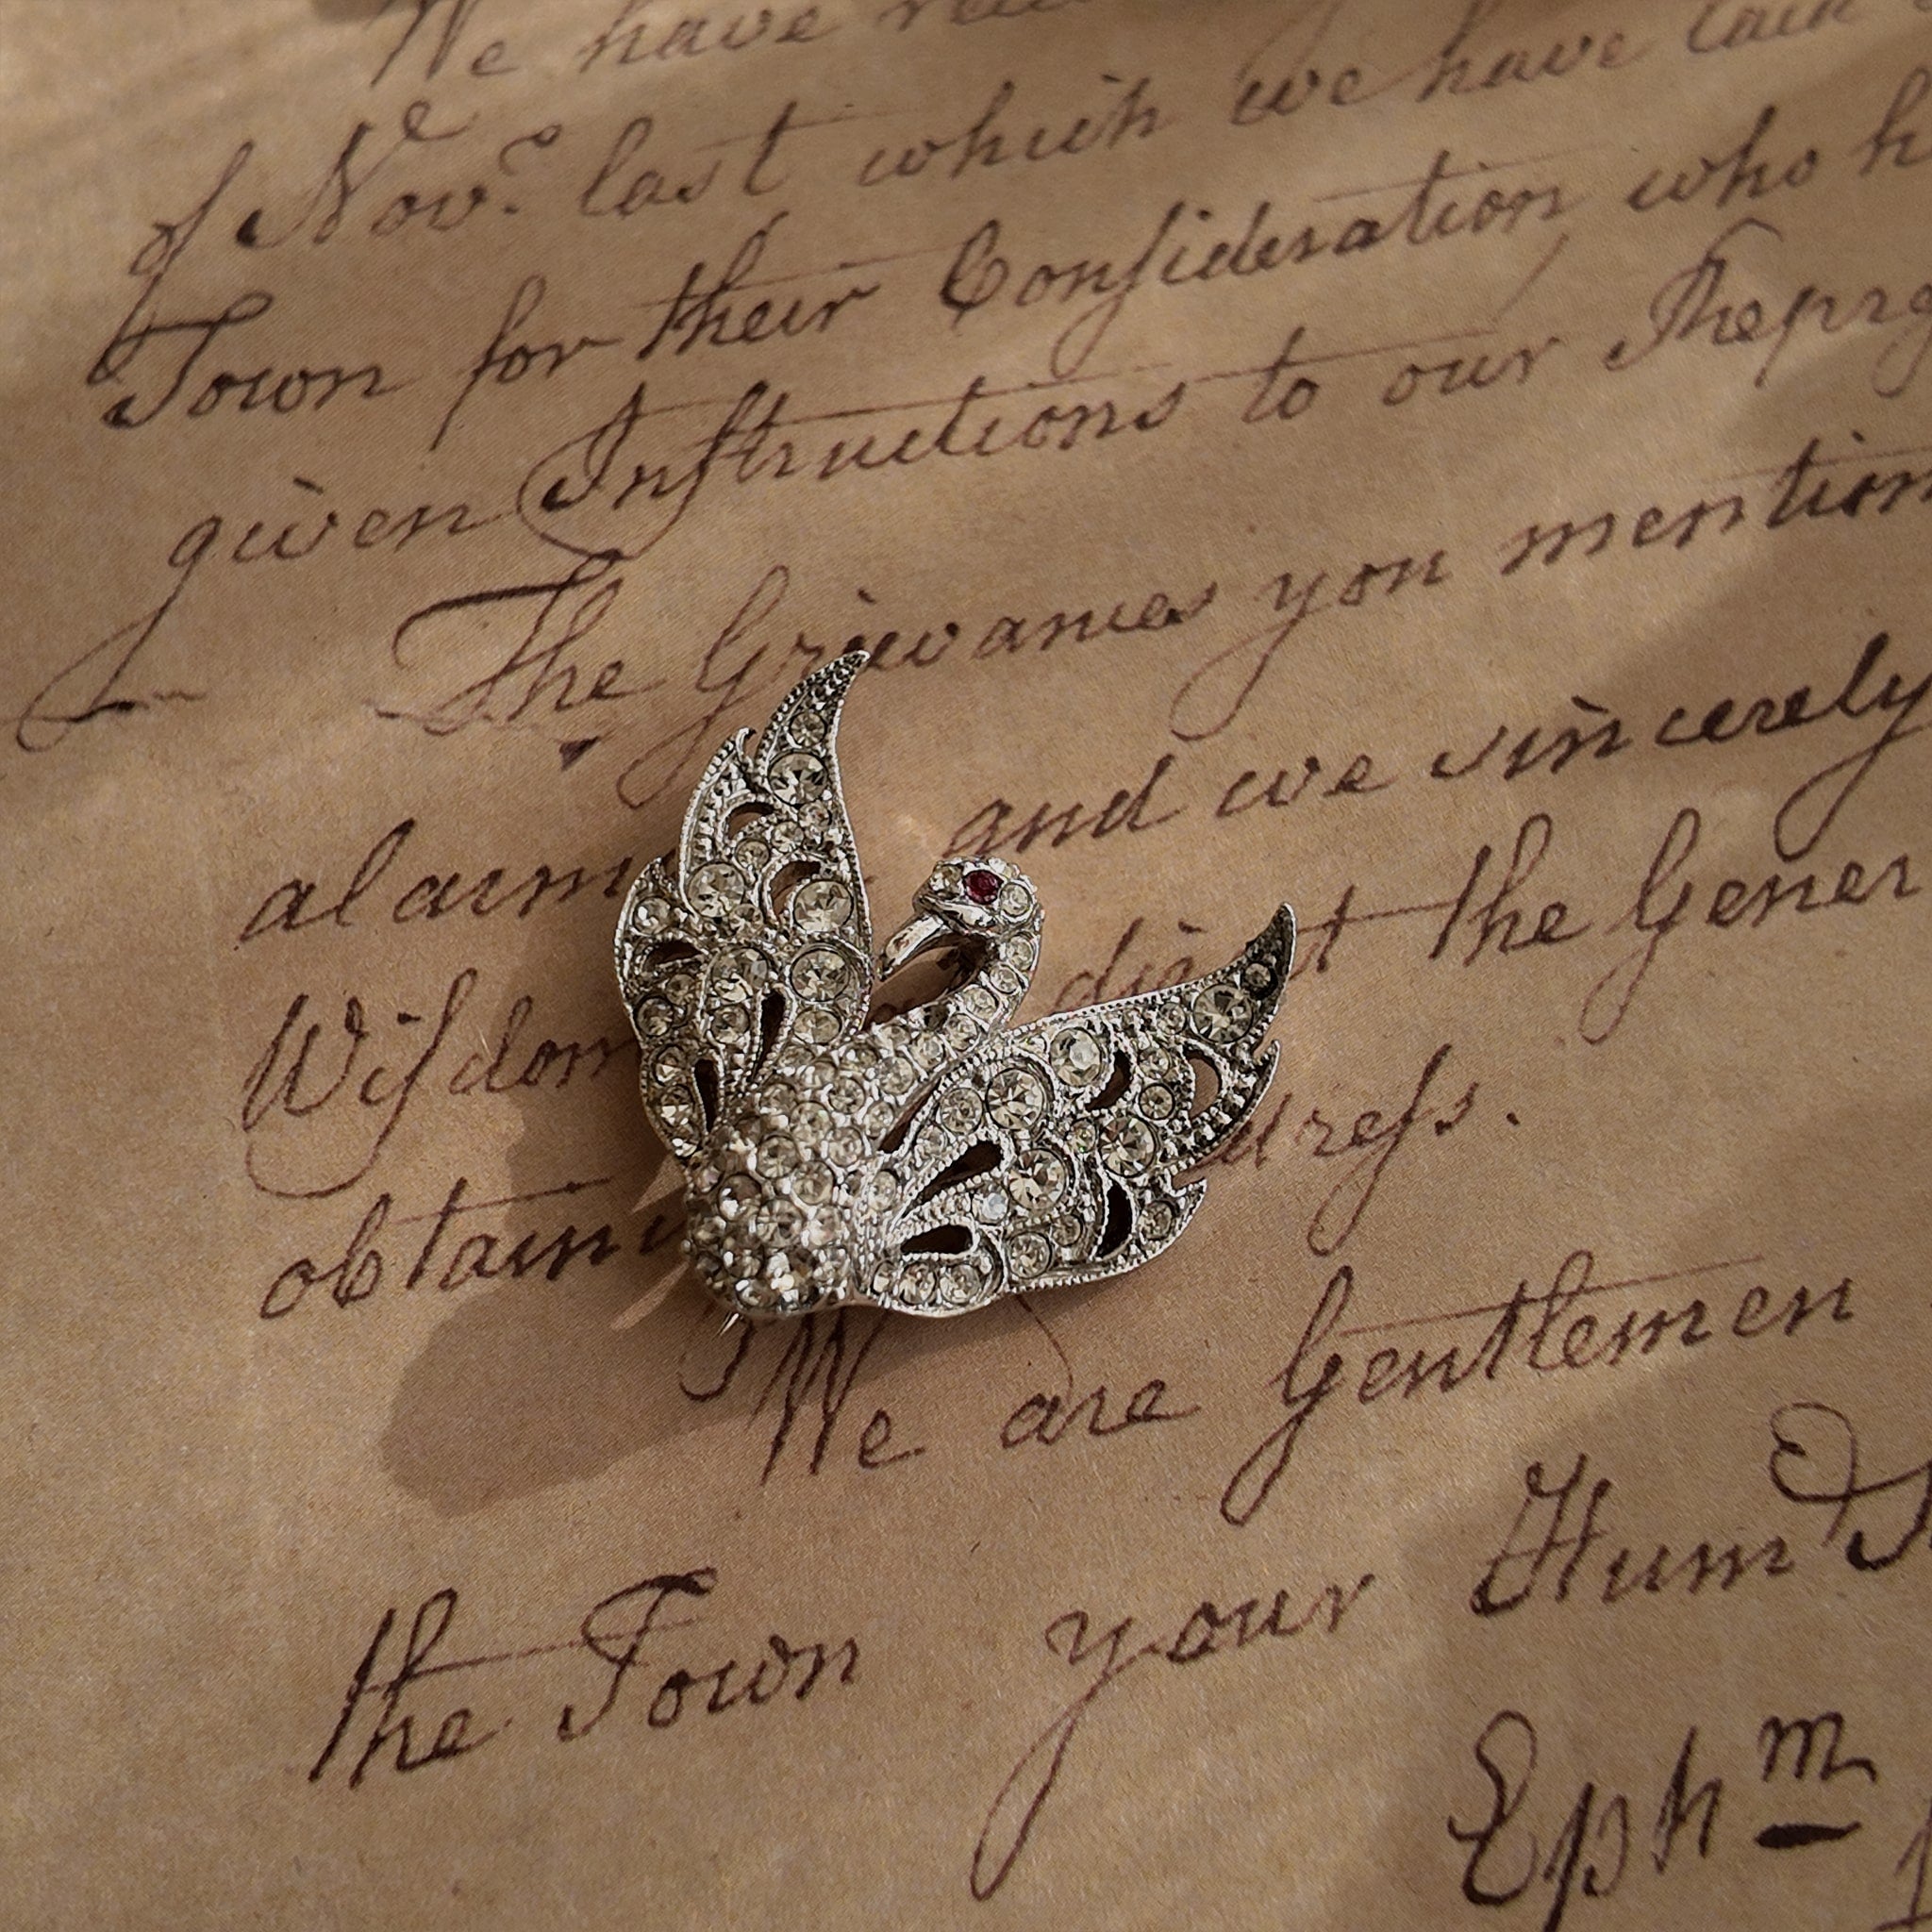 We have
of Novr. last which we have laid
Town for their Consideration who h
given Inſtructions to our Repre
The Grievances you mention
alarm and we sincerely
Wiſdom direct the Gener
obtain dreſs.
We are Gentlemen
the Town your Hum
Ephm